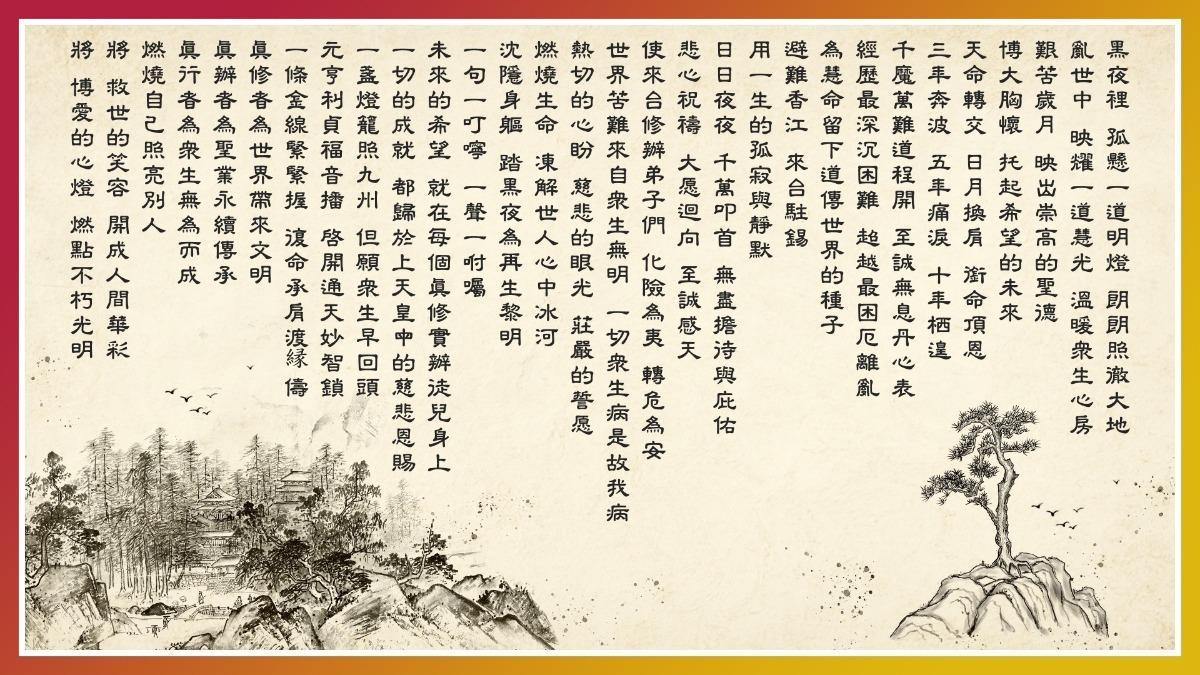 黑夜裡 孤懸一道明燈 朗朗照徹大地
亂世中 映耀一道慧光 溫暖衆生心房
艱苦歲月 映出崇高的聖德
博大胸懷 托起希望的未來
天命轉交 日月換肩 銜命頂恩
三年奔波 五年痛淚 十年栖遑
千魔萬難道程開 至誠無息丹心表
經歷最深沉困難 超越最困厄離亂
為慧命留下道傳世界的種子
避難香江 來台駐錫
用一生的孤寂與靜默
日日夜夜 千萬叩首 無盡擔待與庇佑
悲心祝禱 大愿迴向 至誠感天
使來台修辦弟子們 化險為夷 轉危為安
世界苦難來自衆生無明 一切衆生病是故我病
熱切的心盼 慈悲的眼光 莊嚴的誓愿
燃燒生命 凍解世人心中冰河
沈隱身軀 踏黑夜為再生黎明
一句一叮嚀 一聲一咐囑
未來的希望 就在每個眞修實辦徒兒身上
一切的成就 都歸於上天皇中的慈悲恩賜
一盞燈籠照九州 但願衆生早回頭
元亨利貞福音播 啓開通天妙智鎖
一條金線緊緊握 復命承肩渡緣儔
眞修者為世界帶來文明
眞辦者為聖業永續傳承
眞行者為衆生無為而成
燃燒自己照亮別人
將 救世的笑容 開成人間華彩
將 博愛的心燈 燃點不朽光明